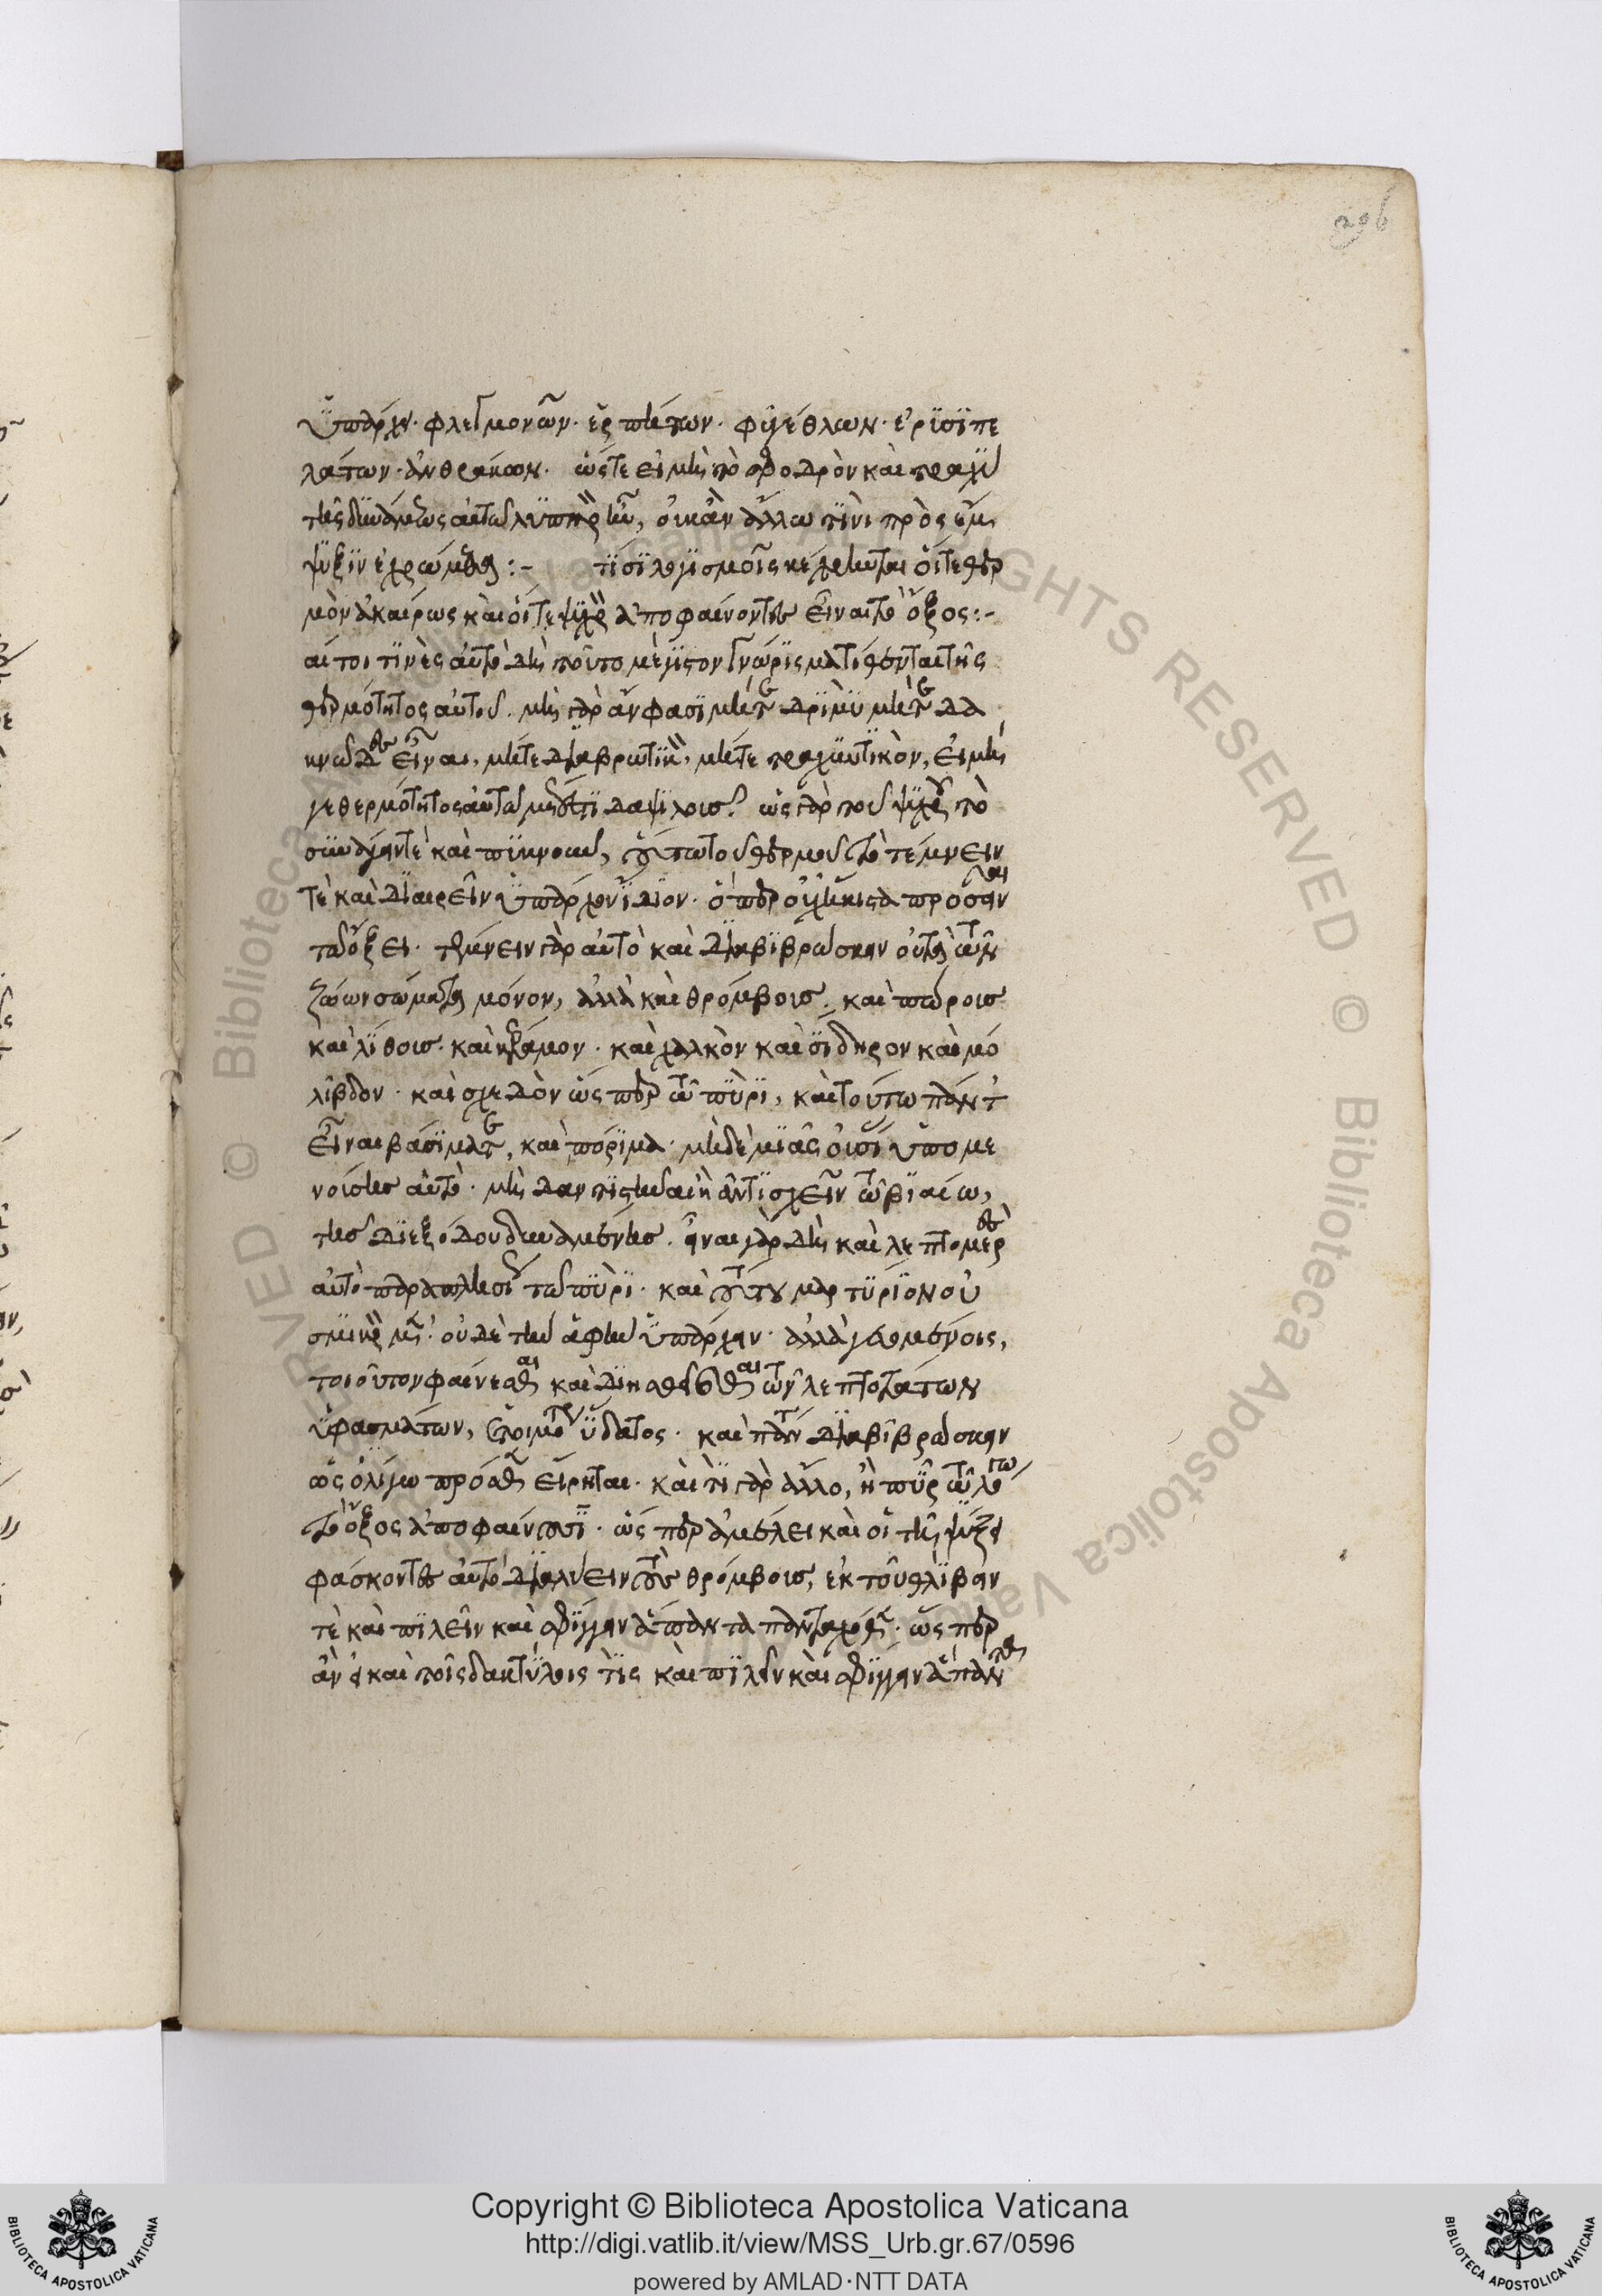 296
ὑπάρχει· φλεγμονῶν· ἑρπήτων· φυγέθλων· ἐρισιπε
λάτων· ἀνθράκων. ὥστε εἰ μὴ τὸ σφοδρὸν καὶ τραχὺ
τῆς δυνάμεως αὐτοῦ λυπηρὸν ἦν, οὐκ ἂν ἄλλω τινὶ πρὸς
ψύξιν ἐχρώμεθα :- τίσι λογισμοῖς κέχρηνται οἵ τε θερ
μὸν ἀκαίρως καὶ οἵ τε ψυχρὸν ἀποφαίνοντες εἶναι τὸ ὄξος :-
αὐτό δὴ τοῦτο μέγιστον γνώρισμα τίθενται τῆς
θερμότητος αὐτοῦ. μὴ γὰρ ἄν φασι μήτε δριμὺ μήτε δα
κνῶδες εἶναι, μήτε διαβρωτικὸν, μήτε τραχυντικὸν, εἰ μὴ
θερμότητος αὐτῶ μετῆν δαψιλοῦς· ὡς γὰρ τοῦ ψυχροῦ τὸ
συνάγειν τὲ καὶ πυκνοῦν, οὕτω τοῦ θερμοῦ τὸ τέμνειν
τὲ καὶ διαιρεῖν ὑπάρχειν ἴδιον· ὅπερ οὐχ ἥκιστα προσεῖναι
τῶ ὄξει· τέμνειν γὰρ αὐτὸ καὶ διαβιβρώσκειν οὐ τὰ τῶν
ζώων σώματα μόνον, ἀλλὰ καὶ θρόμβους. καὶ πώρους
καὶ λίθους· καὶ κέραμον· καὶ χαλκὸν καὶ σίδηρον καὶ μό
λιβδον· καὶ σχεδὸν ὥσπερ τῶ πυρὶ, καὶ τούτω πάντα
εἶναι βάσιμά τε, καὶ πόριμα· μηδὲ μιᾶς οὐσίας ὑπομε
νούσης αὐτὸ· μὴ δ' ἀντισχεῖν τῶ βιαίω,
τῆς διεξόδου δυναμένης. εἶναι γὰρ δὴ καὶ λεπτομερὲς
αὐτὸ παραπλησίως τῶ πυρὶ· καὶ τούτου μαρτύριον οὐ
σμικρὸν οὐδὲ τὴν ἁφὴν ὑπάρχειν· ἀλλὰ γευομένοις,
τοιοῦτον φαίνεσθαι καὶ διηθεῖσθαι τῶν λεπτοτάτων
ὑφασμάτων, ἑτοιμότερον ὕδατος· καὶ πάντα διαβιβρώσκειν
ὡς ὀλίγω πρόσθεν εἴρηται. καὶ τί γὰρ ἄλλο, ἢ πῦρ τῶ λόγω
τὸ ὄξος ἀποφαίνουσι. ὥσπερ ἀμέλει καὶ οἱ τῆ ψύξει
φάσκοντες αὐτὸ διαλύειν τοὺς θρόμβους, ἐκ τοῦ θλίβειν
τὲ καὶ πιλεῖν καὶ σφίγγειν ἅπαντα πανταχόθεν· ὥσπερ
ἂν εἰ καὶ τοῖς δακτύλοις τὶς καὶ πιλῶν καὶ σφίγγων ἅπαντα
Copyright © Biblioteca Apostolica Vaticana
http://digi.vatlib.it/view/MSS_Urb.gr.67/0596
powered by AMLAD·NTT DATA
BIBLIOTECA APOSTOLICA VATICANA
BIBLIOTECA APOSTOLICA VATICANA